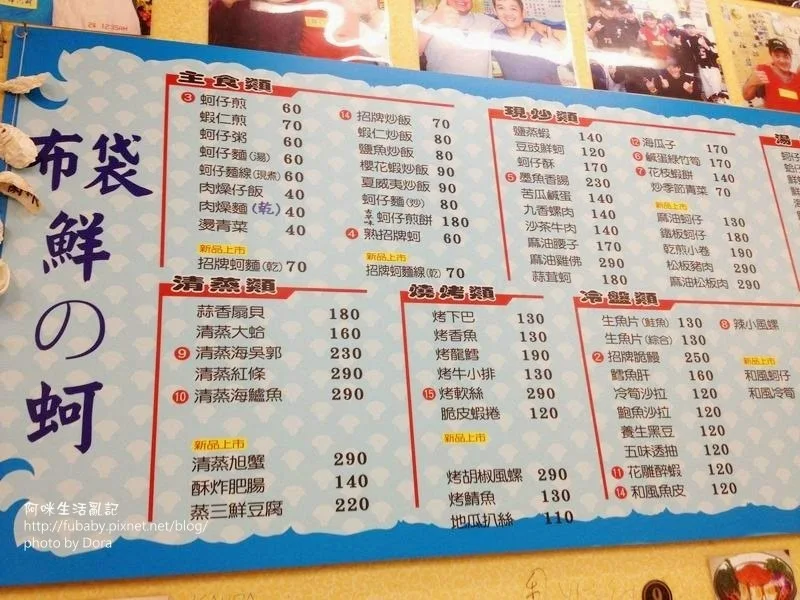 布袋
鮮の蚵
主食類
③ 蚵仔煎 60
蝦仁煎 70
蚵仔粥 60
蚵仔麵(湯) 60
蚵仔麵線(現煮) 60
肉燥仔飯 40
肉燥麵(乾) 40
燙青菜 40
新品上市
招牌蚵麵(乾) 70
⑭ 招牌炒飯 70
蝦仁炒飯 80
鹽魚炒飯 80
櫻花蝦炒飯 90
夏威夷炒飯 90
蚵仔麵(炒) 80
蚵仔煎餅 180
④ 熟招牌蚵 60
新品上市
招牌蚵麵線(乾) 70
現炒類
鹽蒸蝦 140
豆豉鮮蚵 120
蚵仔酥 170
⑤ 墨魚香腸 230
苦瓜鹹蛋 140
九香螺肉 140
沙茶牛肉 140
麻油腰子 170
麻油雞佛 290
蒜茸蚵 180
⑫ 海瓜子 170
⑥ 鹹蛋綠竹筍 170
⑦ 花枝蝦餅 140
炒季節青菜 70
新品上市
麻油蚵仔 130
鐵板蚵仔 180
乾煎小卷 190
松板豬肉 290
麻油松板肉 290
湯
清蒸類
蒜香扇貝 180
清蒸大蛤 160
⑨ 清蒸海吳郭 230
清蒸紅條 290
⑩ 清蒸海鱸魚 290
新品上市
清蒸旭蟹 290
酥炸肥腸 140
蒸三鮮豆腐 220
燒烤類
烤下巴 130
烤香魚 130
烤龍鱈 190
烤牛小排 130
⑮ 烤軟絲 290
脆皮蝦捲 120
新品上市
烤胡椒風螺 290
烤鯖魚 130
地瓜扒絲 110
冷盤類
生魚片(鮭魚) 130
生魚片(綜合) 130
② 招牌脆鰻 250
鱈魚肝 160
冷筍沙拉 120
鮑魚沙拉 120
養生黑豆 120
五味透抽 120
⑪ 花雕醉蝦 120
⑭ 和風魚皮 120
⑧ 辣小風螺
新品上市
和風蚵仔
和風冷筍
阿咪生活亂記
http://fubaby.pixnet.net/blog/
photo by Dora